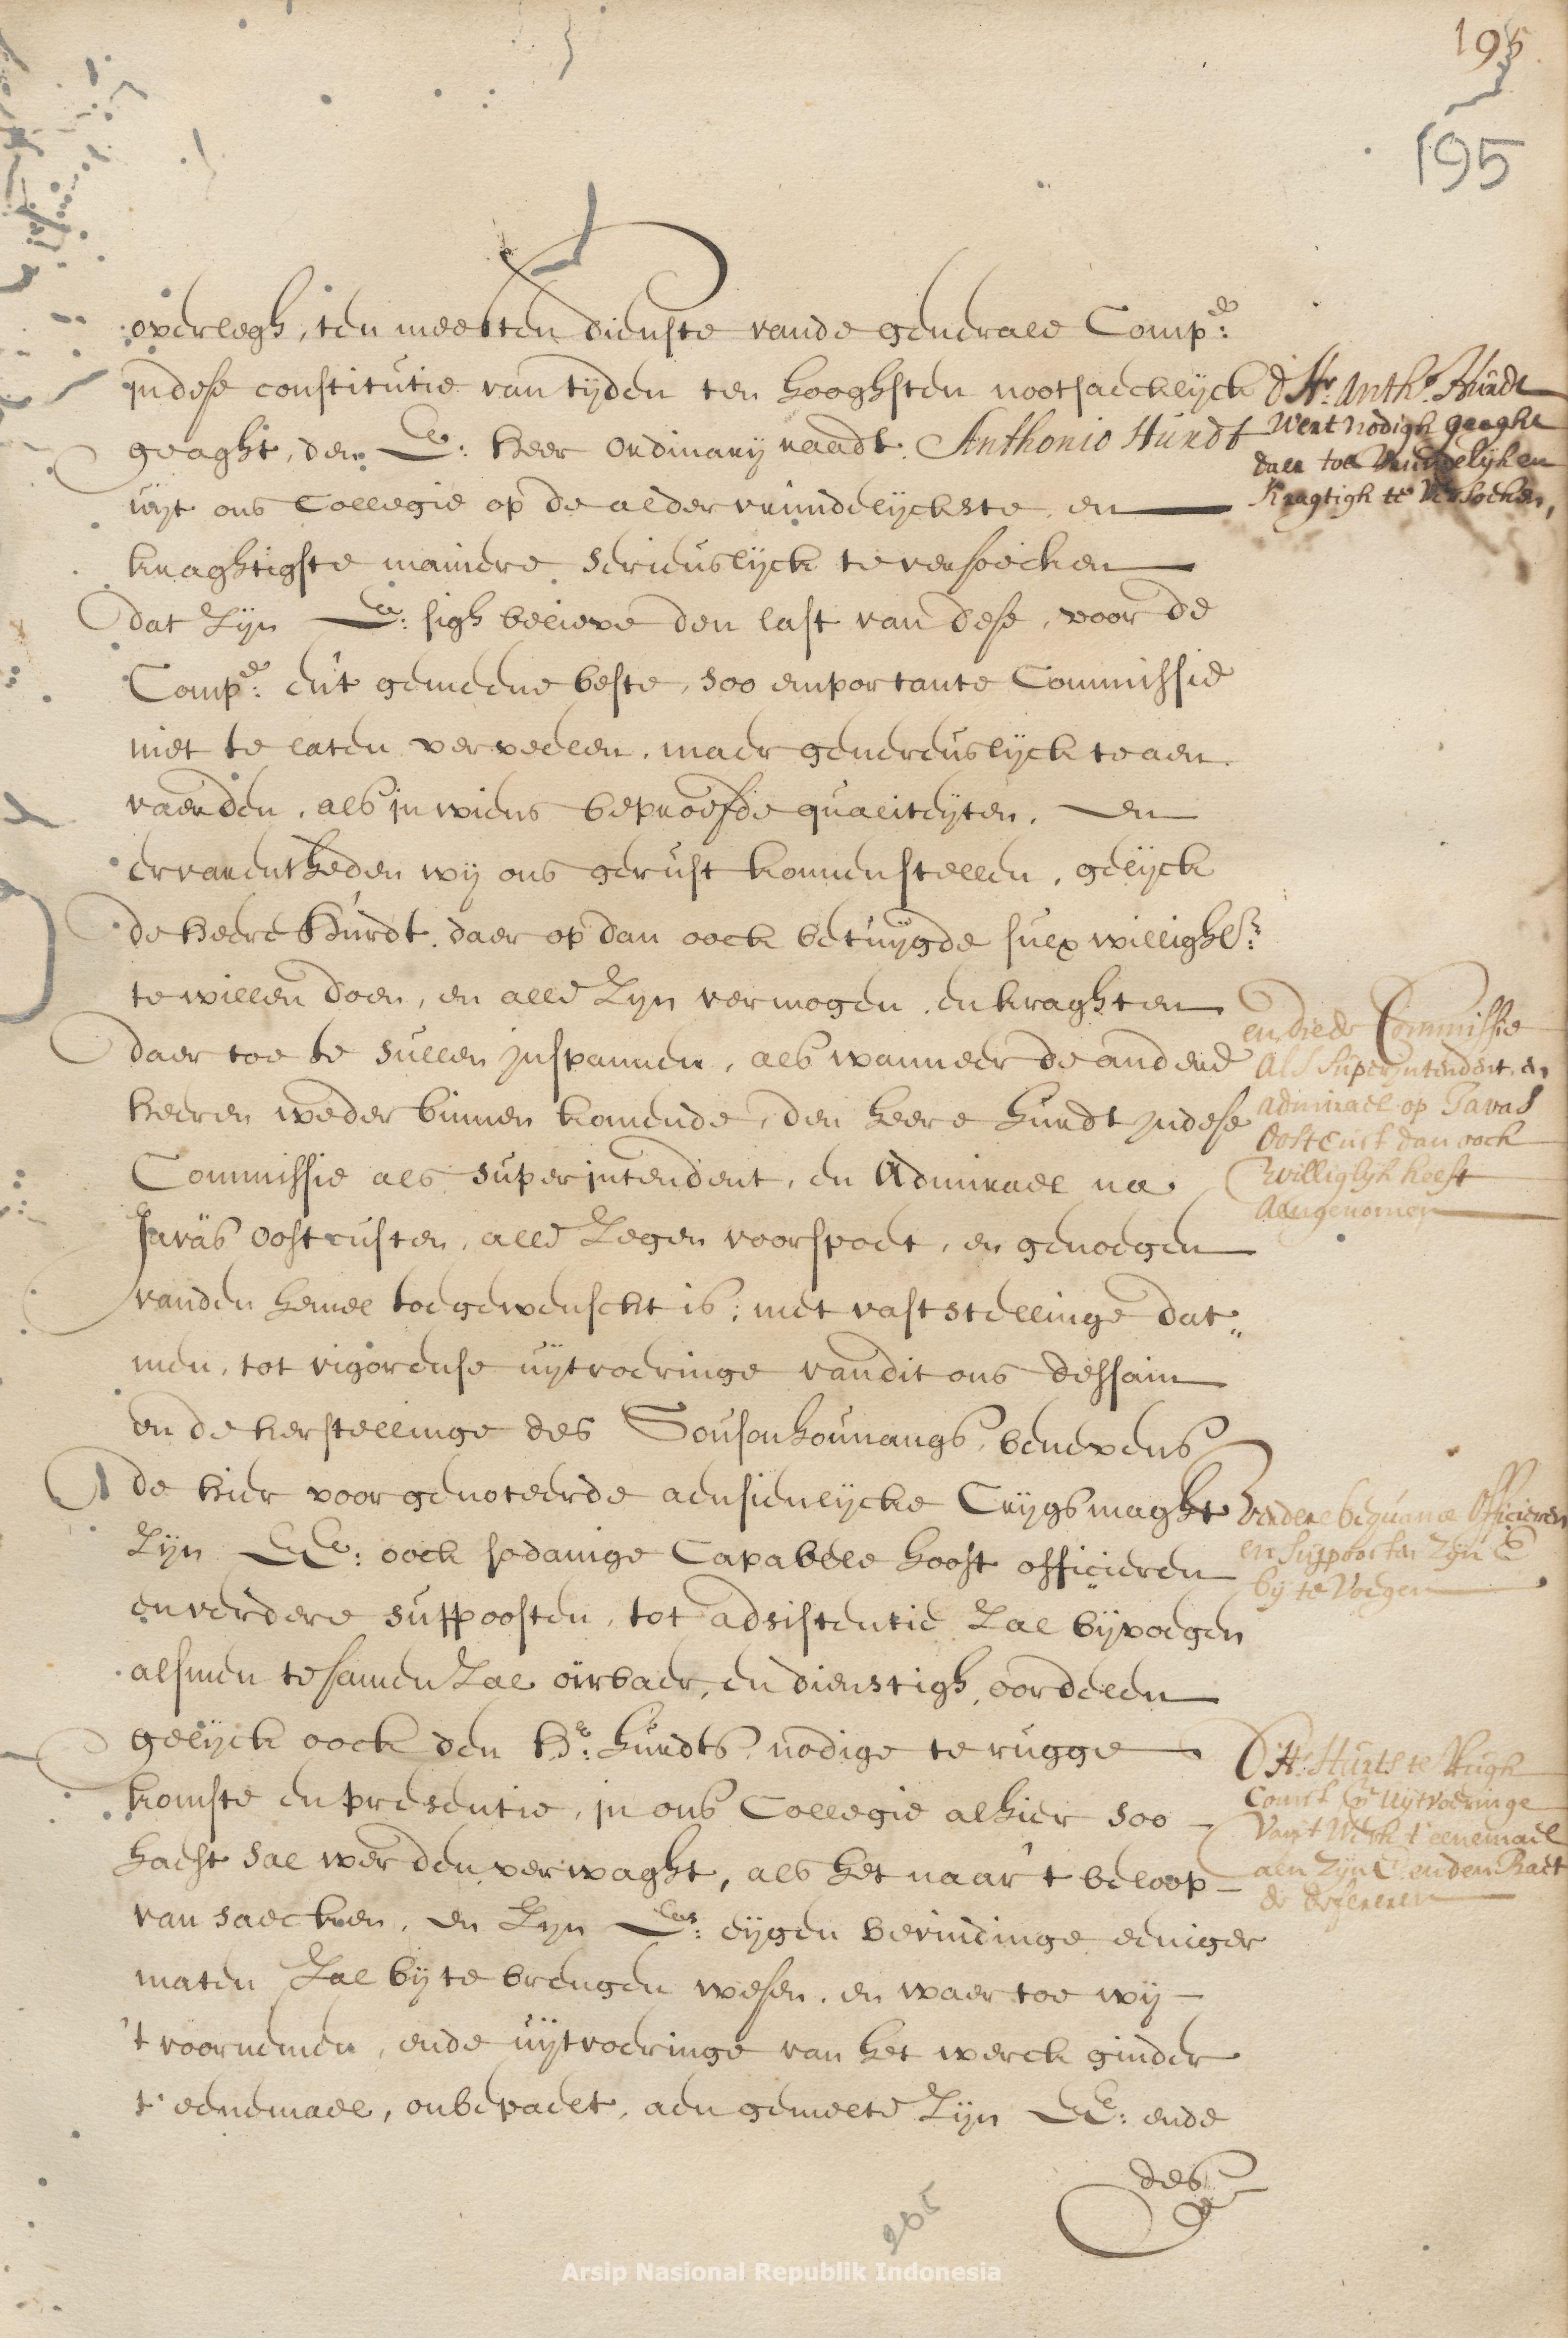 195
195
overlegh, ten meesten dienste vande generale Comp.e:
in dese constitutie van tijden ten hooghsten nootsaecklyck
geaght, den E.e: heer ordinary raadt. Anthonio Hurdt
uyt ons Collegie op de aldervrundelyckste, en
kraghtigste maniere serieuslyck te versoecken
dat Zyn E.e: sigh believe den last van dese, voor de
Comp.e: en 't gemeene beste, soo emportante Commissie
niet te laten verveelen, maer genereuslyck te aen
vaerden, als in wiens beproefde qualiteyten, en
ervarentheden wy ons gerust konnen stellen, gelyck
de heere Hurdt. daer op dan oock betuygde sulx willigh
te willen doen, en alle Zyn vermogen en kraghten
daer toe te sullen inspannen, als wanneer de andere
heeren weder binnen komende, den heere hurdt in dese
Commissie als superintendent, en Admirael na
Javas oostcusten, alle Zegen voorspoet, en genoegen
vanden hemel toegewenscht is; met vaststellinge dat„
men, tot rigoreuse uytvoeringe van dit ons dessain
en de herstellinge des Sousouhounangs, benevens
de hier voor genoteerde aensienlycke Crygsmaght
Zyn EE: oock sodanige Capabele hooft officieren
en verdere suppoosten, tot adsistentie Zal byvoegen
alsmen tesamen Zal oirbaer, en dienstigh, oordeelen
gelyck oock den H.r: hurdts nodige terugge
komste en presentie, in ons Collegie alhier soo
haest sal werden verwaght, als het naar 't beloop
van saecken, en Zyn E.es: eygen bevindinge eeniger
maten Zal by te brengen wesen, en waer toe wy
't voornemen, ende uytvoeringe van het werck ginder
t' eenemael, onbepaelt, aen gemelte Zyn EE: ende
des
d' H.r Anth.o Hurdt
wert nodigh geaght
daer toe vrundelyk en
kragtigh te versoeken,
en die de Commissie
als superintendent, en
admirael op Javas
Oostcust dan oock
willighlyk heeft
aengenomen
verdere bequame Officieren
en suppoosten Zyn E
by te voegen
d' H.r Hurts te Rugh
Comst en uytvoeringe
van 't Werk t' eenemael
aen Zyn E. en den Raet
de defereren
265
Arsip Nasional Republik Indonesia